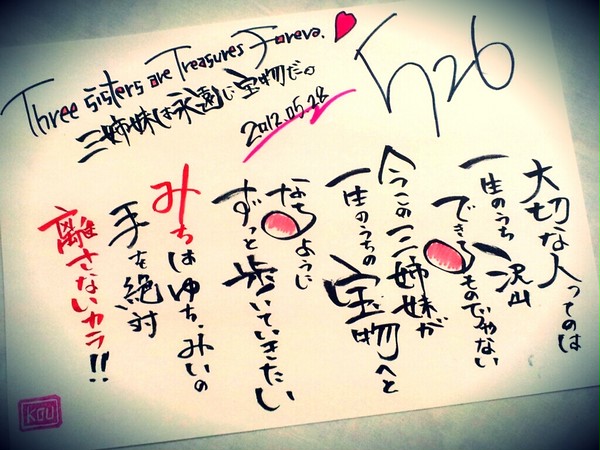 Three sisters are Treasures Foreva.
三姉妹は永遠に宝物だ。
2012.05.28
大切な人ってのは
一生のうち沢山
できるものぢゃない
今この三姉妹が
一生のうちの宝物へと
なるように
ずっと歩いていきたい
みちはゆち、みいの
手を絶対
離さないカラ!!
KOU